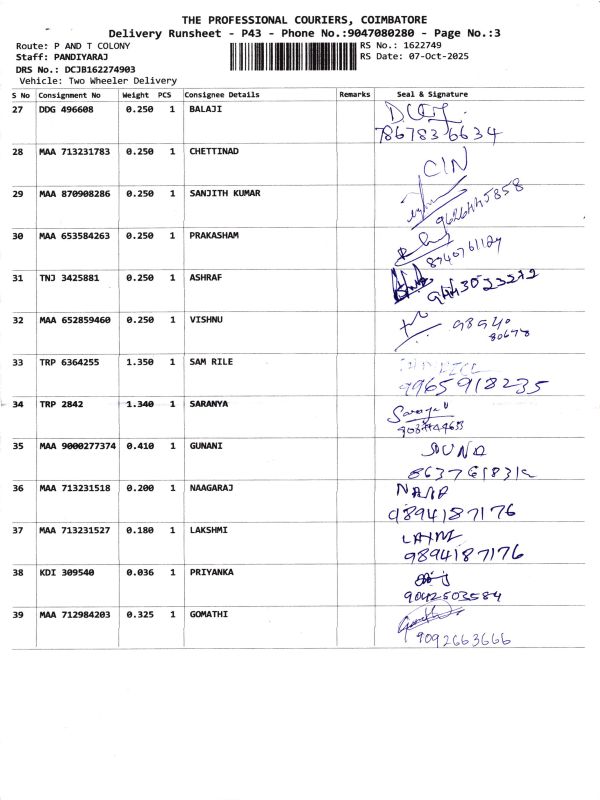 THE PROFESSIONAL COURIERS, COIMBATORE
Delivery Runsheet - P43 - Phone No.:9047080280 - Page No.:3
Route: P AND T COLONY RS No.: 1622749
Staff: PANDIYARAJ RS Date: 07-Oct-2025
DRS No.: DCJB162274903
Vehicle: Two Wheeler Delivery
S No Consignment No Weight PCS Consignee Details Remarks Seal & Signature
27 DDG 496608 0.250 1 BALAJI
7867836634
28 MAA 713231783 0.250 1 CHETTINAD CIN
29 MAA 870908286 0.250 1 SANJITH KUMAR
9626445858
30 MAA 653584263 0.250 1 PRAKASHAM
8740761124
31 TNJ 3425881 0.250 1 ASHRAF
9443023222
32 MAA 652859460 0.250 1 VISHNU 98940
80678
33 TRP 6364255 1.350 1 SAM RILE
9965918235
34 TRP 2842 1.340 1 SARANYA Saranya
35 MAA 9000277374 0.410 1 GUNANI GUNA
8637618312
36 MAA 713231518 0.200 1 NAAGARAJ NAAP
9894187176
37 MAA 713231527 0.180 1 LAKSHMI LAXMI
9894187176
38 KDI 309540 0.036 1 PRIYANKA
9042503584
39 MAA 712984203 0.325 1 GOMATHI
9092663666